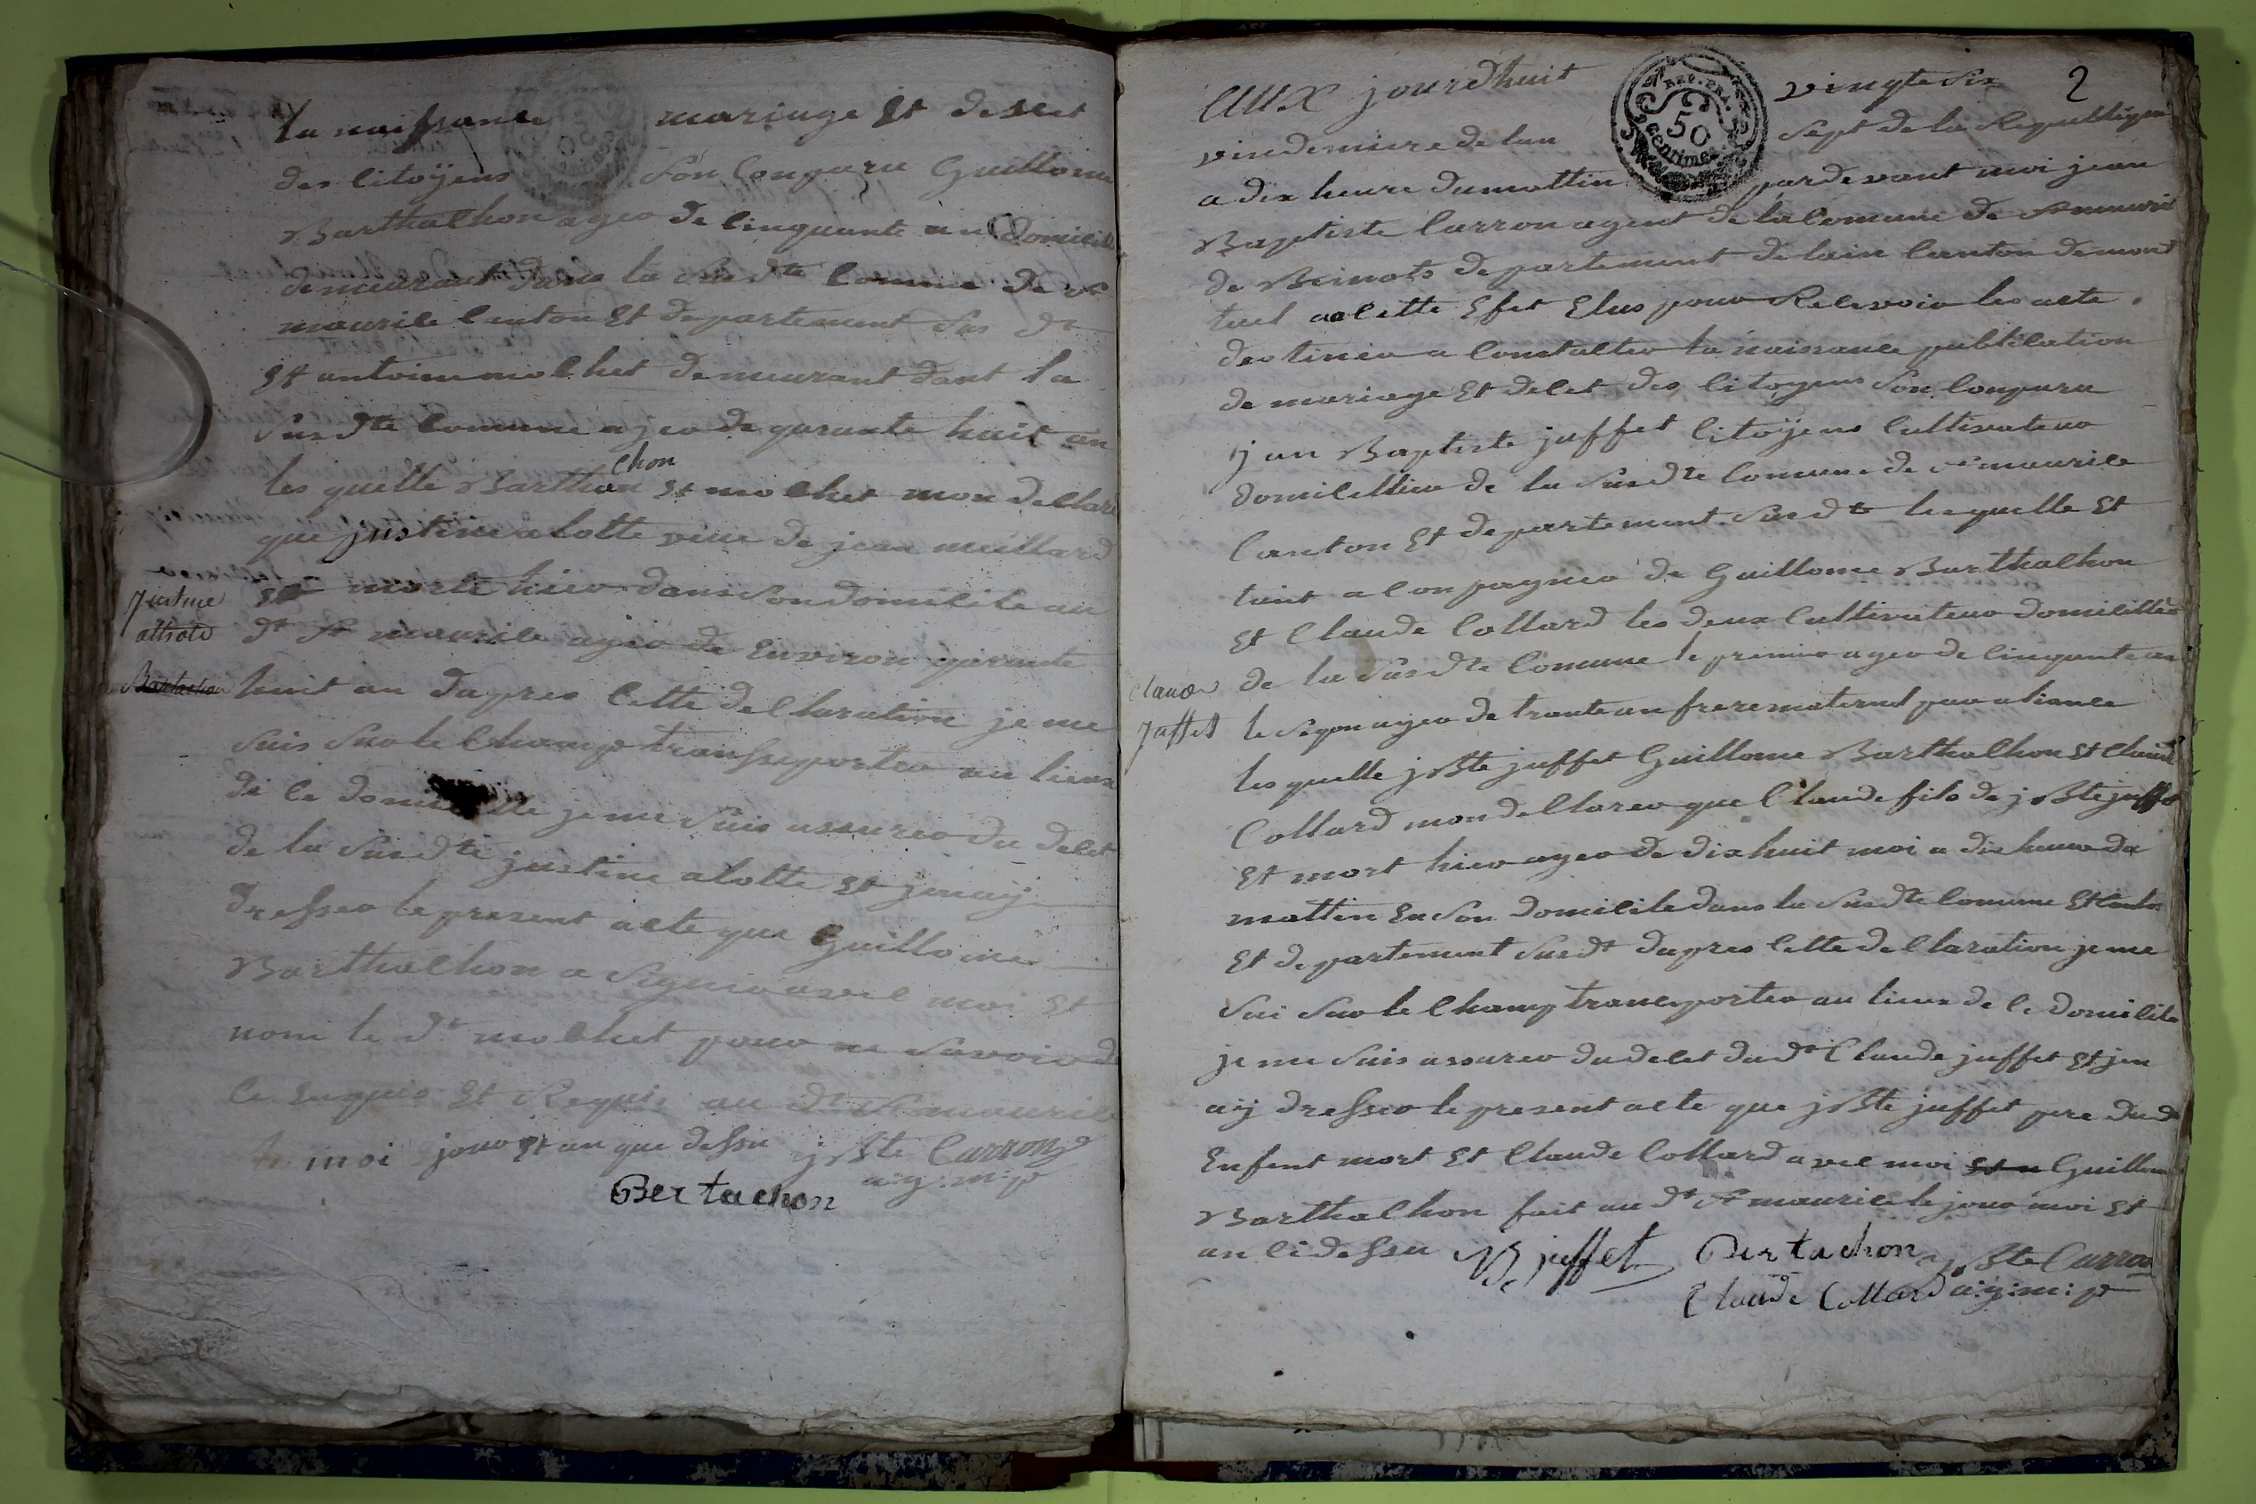 la naissance mariage et de sect
des Citoyens son Conparu Guillome
Barthalhon ageo de Cinquante an Domicile
demeurant dans la susdte Comune de st
maurice Canton Et departement sus dt
Et antoine mochet demeurant dant la
susdte Comune ageo de quarante huit an
les quelle Barthachon Et mochet mon declare
que justine alotte veuve de jean meillard
Et morte hier dans son domicile au
dt st maurice ageo de Environ quarante
huit an dapres Cette declaration je me
suis suo le Champ transsporteo au lieux
de ce domicille je me suis assureo du decet
de la susdte justine alotte Et jenaij
dresseo le present acte que Guillome
Barthalhon a signeo avec moi Et
nom le dt mochet pouo ne savoir
Ce Enquis Et Requis au dt st maurice
le moi jour Et an que dessu j Bte Carron
a:g:m:p
Bertachon
Justine
allote
Bartachon
2
AUX jourdhuit vingte six
vindemiere de lan sept de la Republique
a dix heure du mattin pardevant moi jean
Baptiste Carron agent de la Comune de st maurice
de Beinots departement de lain Canton de mont
luel a Cette Efet Elus pour Recevoir les acte
destineo a Constatteo la naissance publication
de mariage Et decet des Citoyens son Conparu
jan Baptiste juffet Citoyens Cultivateuo
domicillieo de la susdte Comune de st maurice
Canton Et departement susdte lequelle Et
tant aConpagneo de Guillome Barthalhon
Et Claude Collard les deux Cultivateuo domicillieo
de la susdte Comune le premier ageo de Cinquante an
le segon ageo de trante an frere maternel pao aliance
les quelle jBte juffet Guillome Barthalhon Et Claude
Collard mon declareo que Claude fils de jBte juffet
Et mort hieo ageo de dix huit moi a dix heure du
mattin En son domicile dans la susdte Comune Et Canton
Et departement susdt dapres Cette declaration je me
sui suo le Champ transporteo au lieux de Ce domicile
je me suis assureo du decet du dt Claude juffet Et jen
aij dresseo le present acte que jBte juffet pere du dt
Enfent mort Et Claude Collard avec moi Et n Guillome
Barthalhon fait au dt st maurice le jouo moi Et
an Cidessu B juffet Bertachon j Bte Carron
Claude Collard a:g:m:p
Claude
Juffet
REP. FRA.
50
Centimes